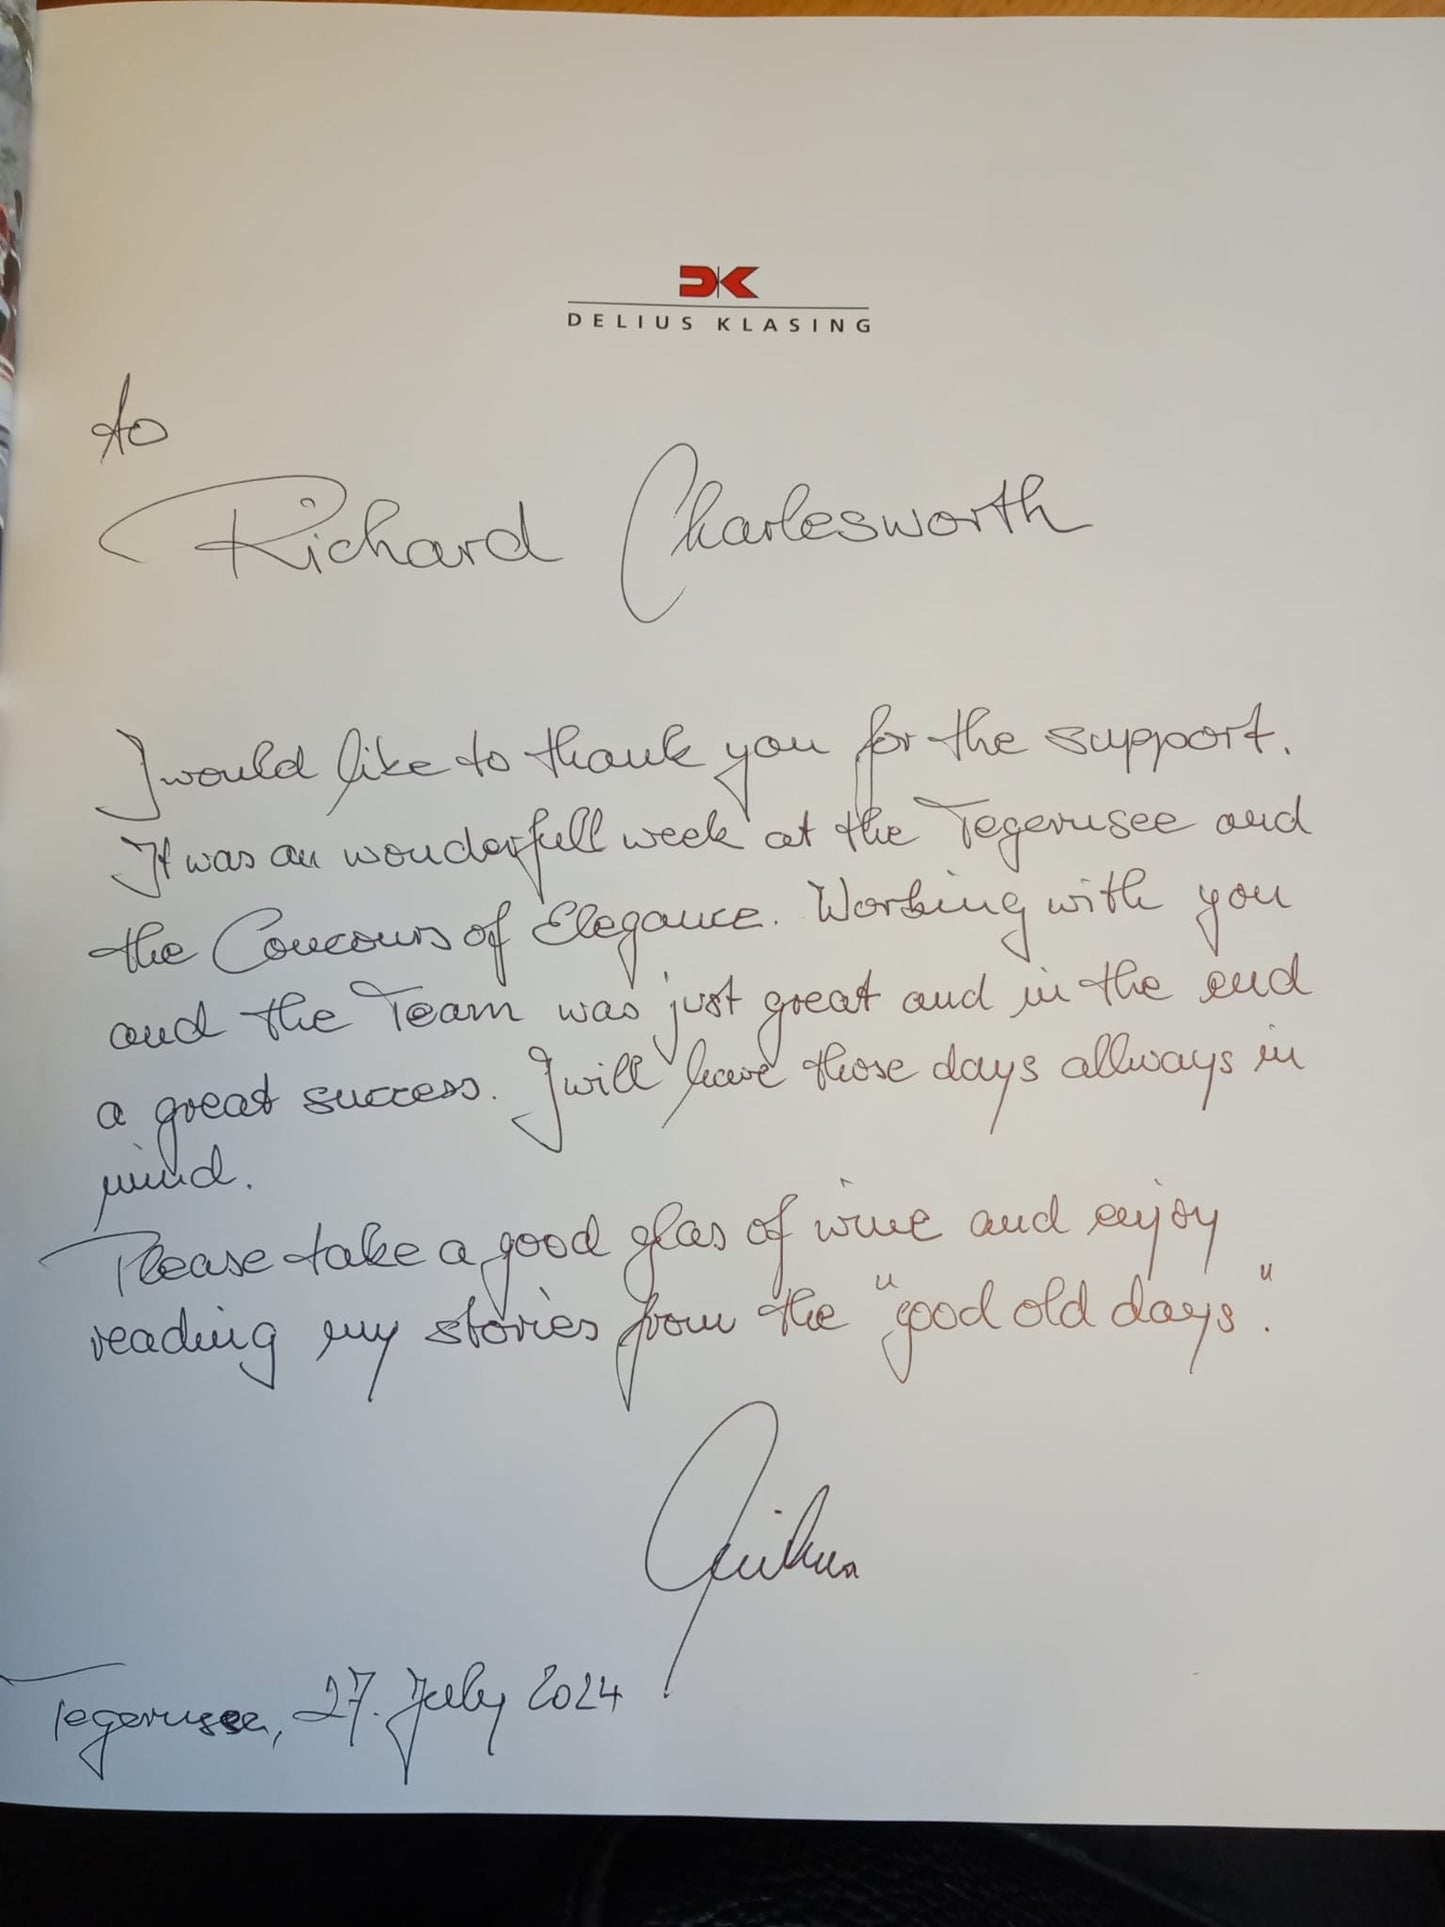 DK
DELIUS KLASING
to
Richard Charlesworth
I would like to thank you for the support.
It was an wonderfull week at the Tegernsee and
the Concours of Elegance. Working with you
and the Team was just great and in the end
a great success. I will have those days allways in
mind.
Please take a good glas of wine and enjoy
reading my stories from the "good old days".
Tegernsee, 27. July 2024